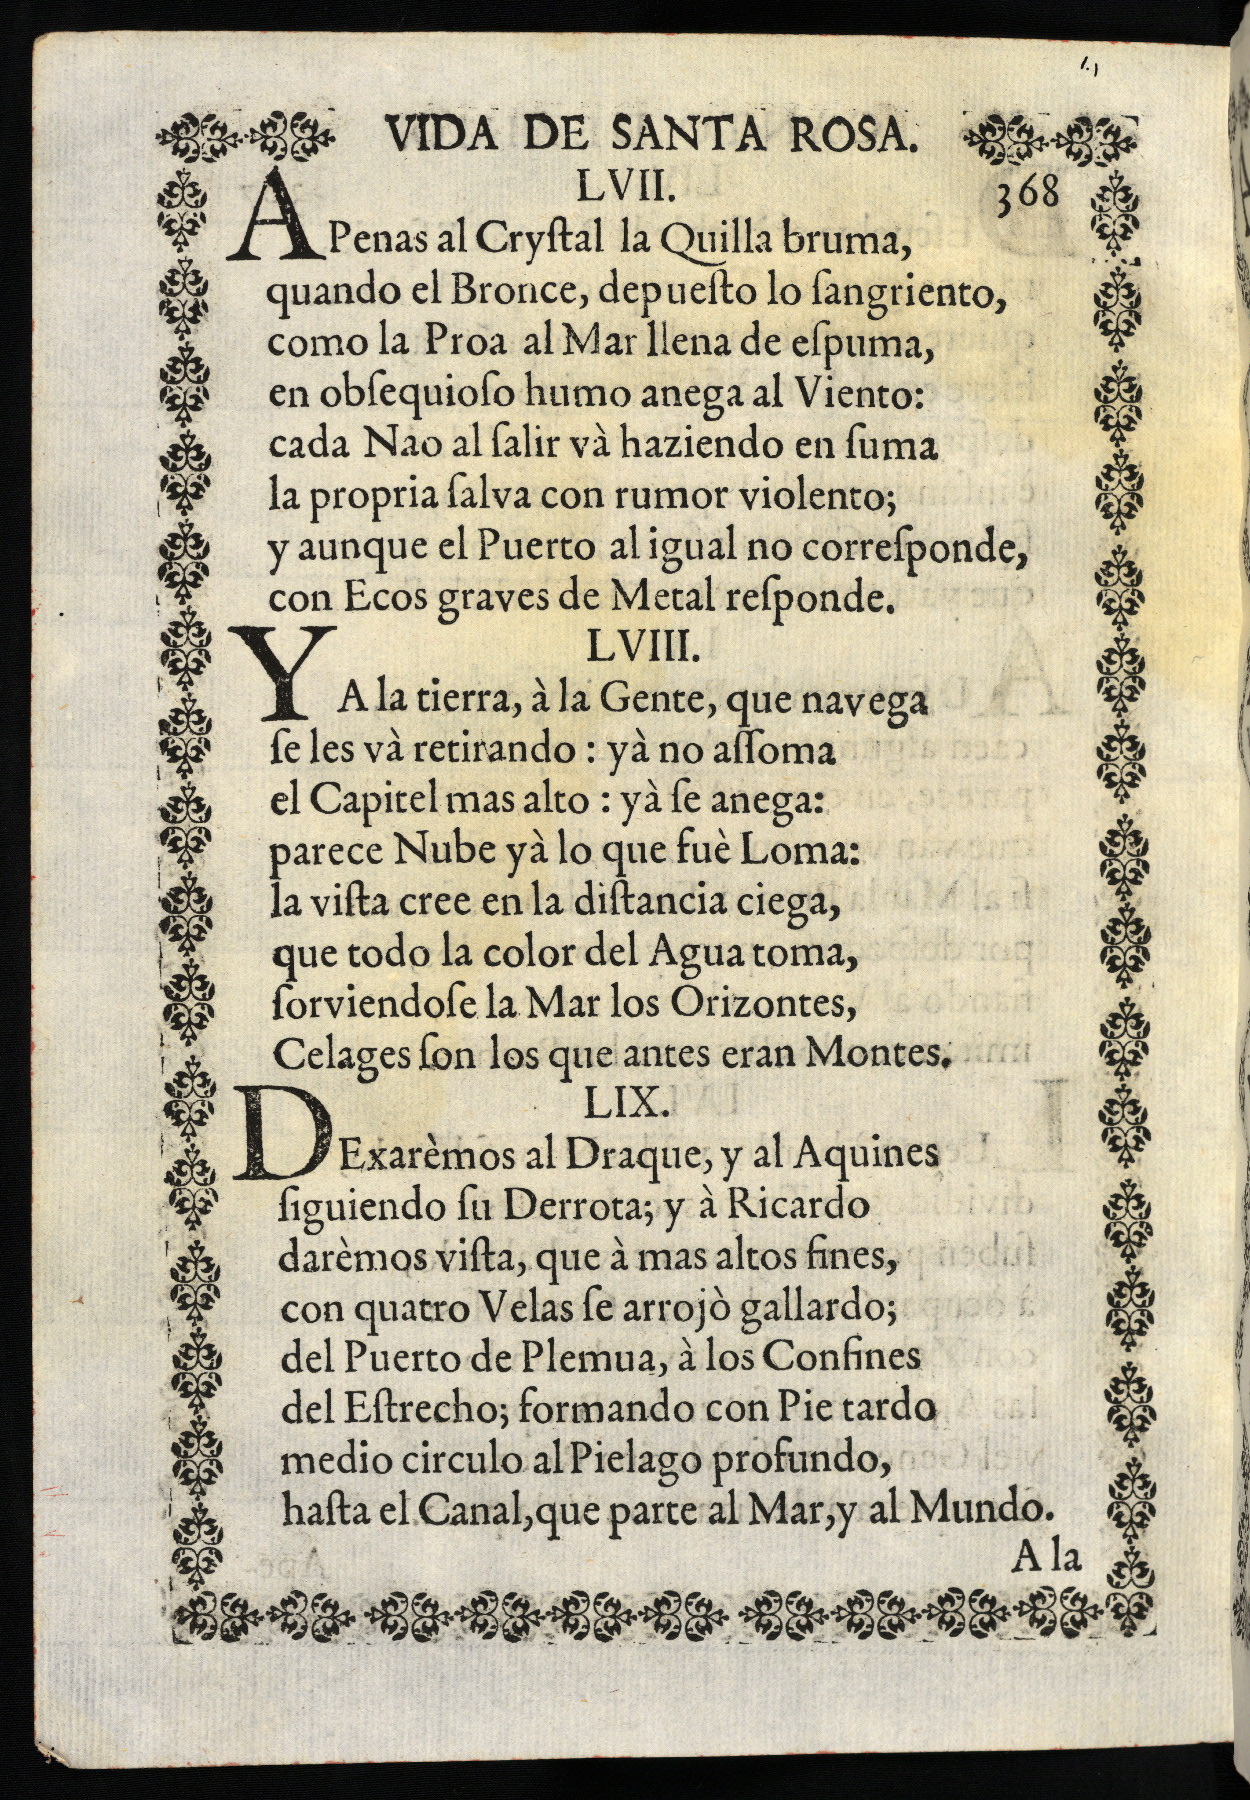 VIDA DE SANTA ROSA.
LVII. 368
APenas al Cryſtal la Quilla bruma,
quando el Bronce, depueſto lo ſangriento,
como la Proa al Mar llena de eſpuma,
en obſequioſo humo anega al Viento:
cada Nao al ſalir và haziendo en ſuma
la propria ſalva con rumor violento;
y aunque el Puerto al igual no correſponde,
con Ecos graves de Metal reſponde.
LVIII.
YA la tierra, à la Gente, que navega
ſe les và retirando : yà no aſſoma
el Capitel mas alto : yà ſe anega:
parece Nube yà lo que fuè Loma:
la viſta cree en la diſtancia ciega,
que todo la color del Agua toma,
ſorviendoſe la Mar los Orizontes,
Celages ſon los que antes eran Montes.
LIX.
DExarèmos al Draque, y al Aquines
ſiguiendo ſu Derrota; y à Ricardo
darèmos viſta, que à mas altos fines,
con quatro Velas ſe arrojò gallardo;
del Puerto de Plemua, à los Confines
del Eſtrecho; formando con Pie tardo
medio circulo al Pielago profundo,
haſta el Canal,que parte al Mar,y al Mundo.
A la